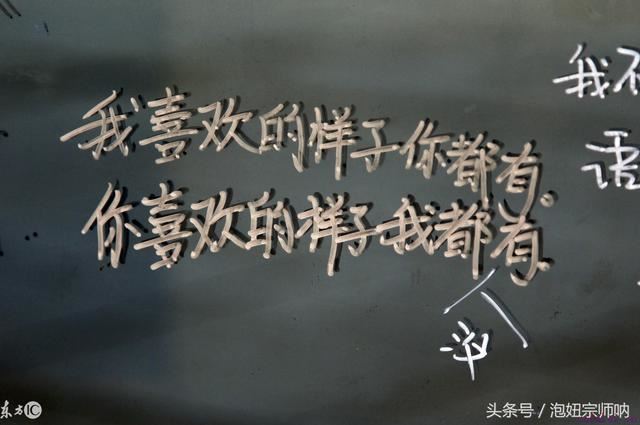 我喜欢的样子你都有.
你喜欢的样子我都有.
没
我不
话
东方IC
头条号／泡妞宗师呐